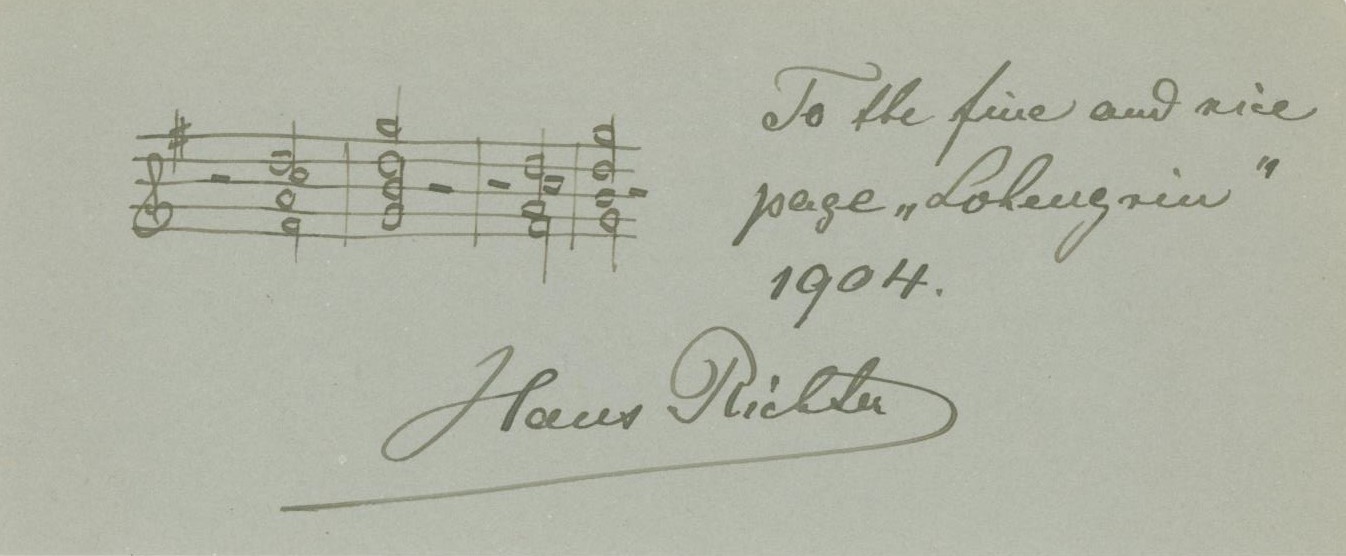 To the fine and nice
page „Lohengrin"
1904.
Hans Richter